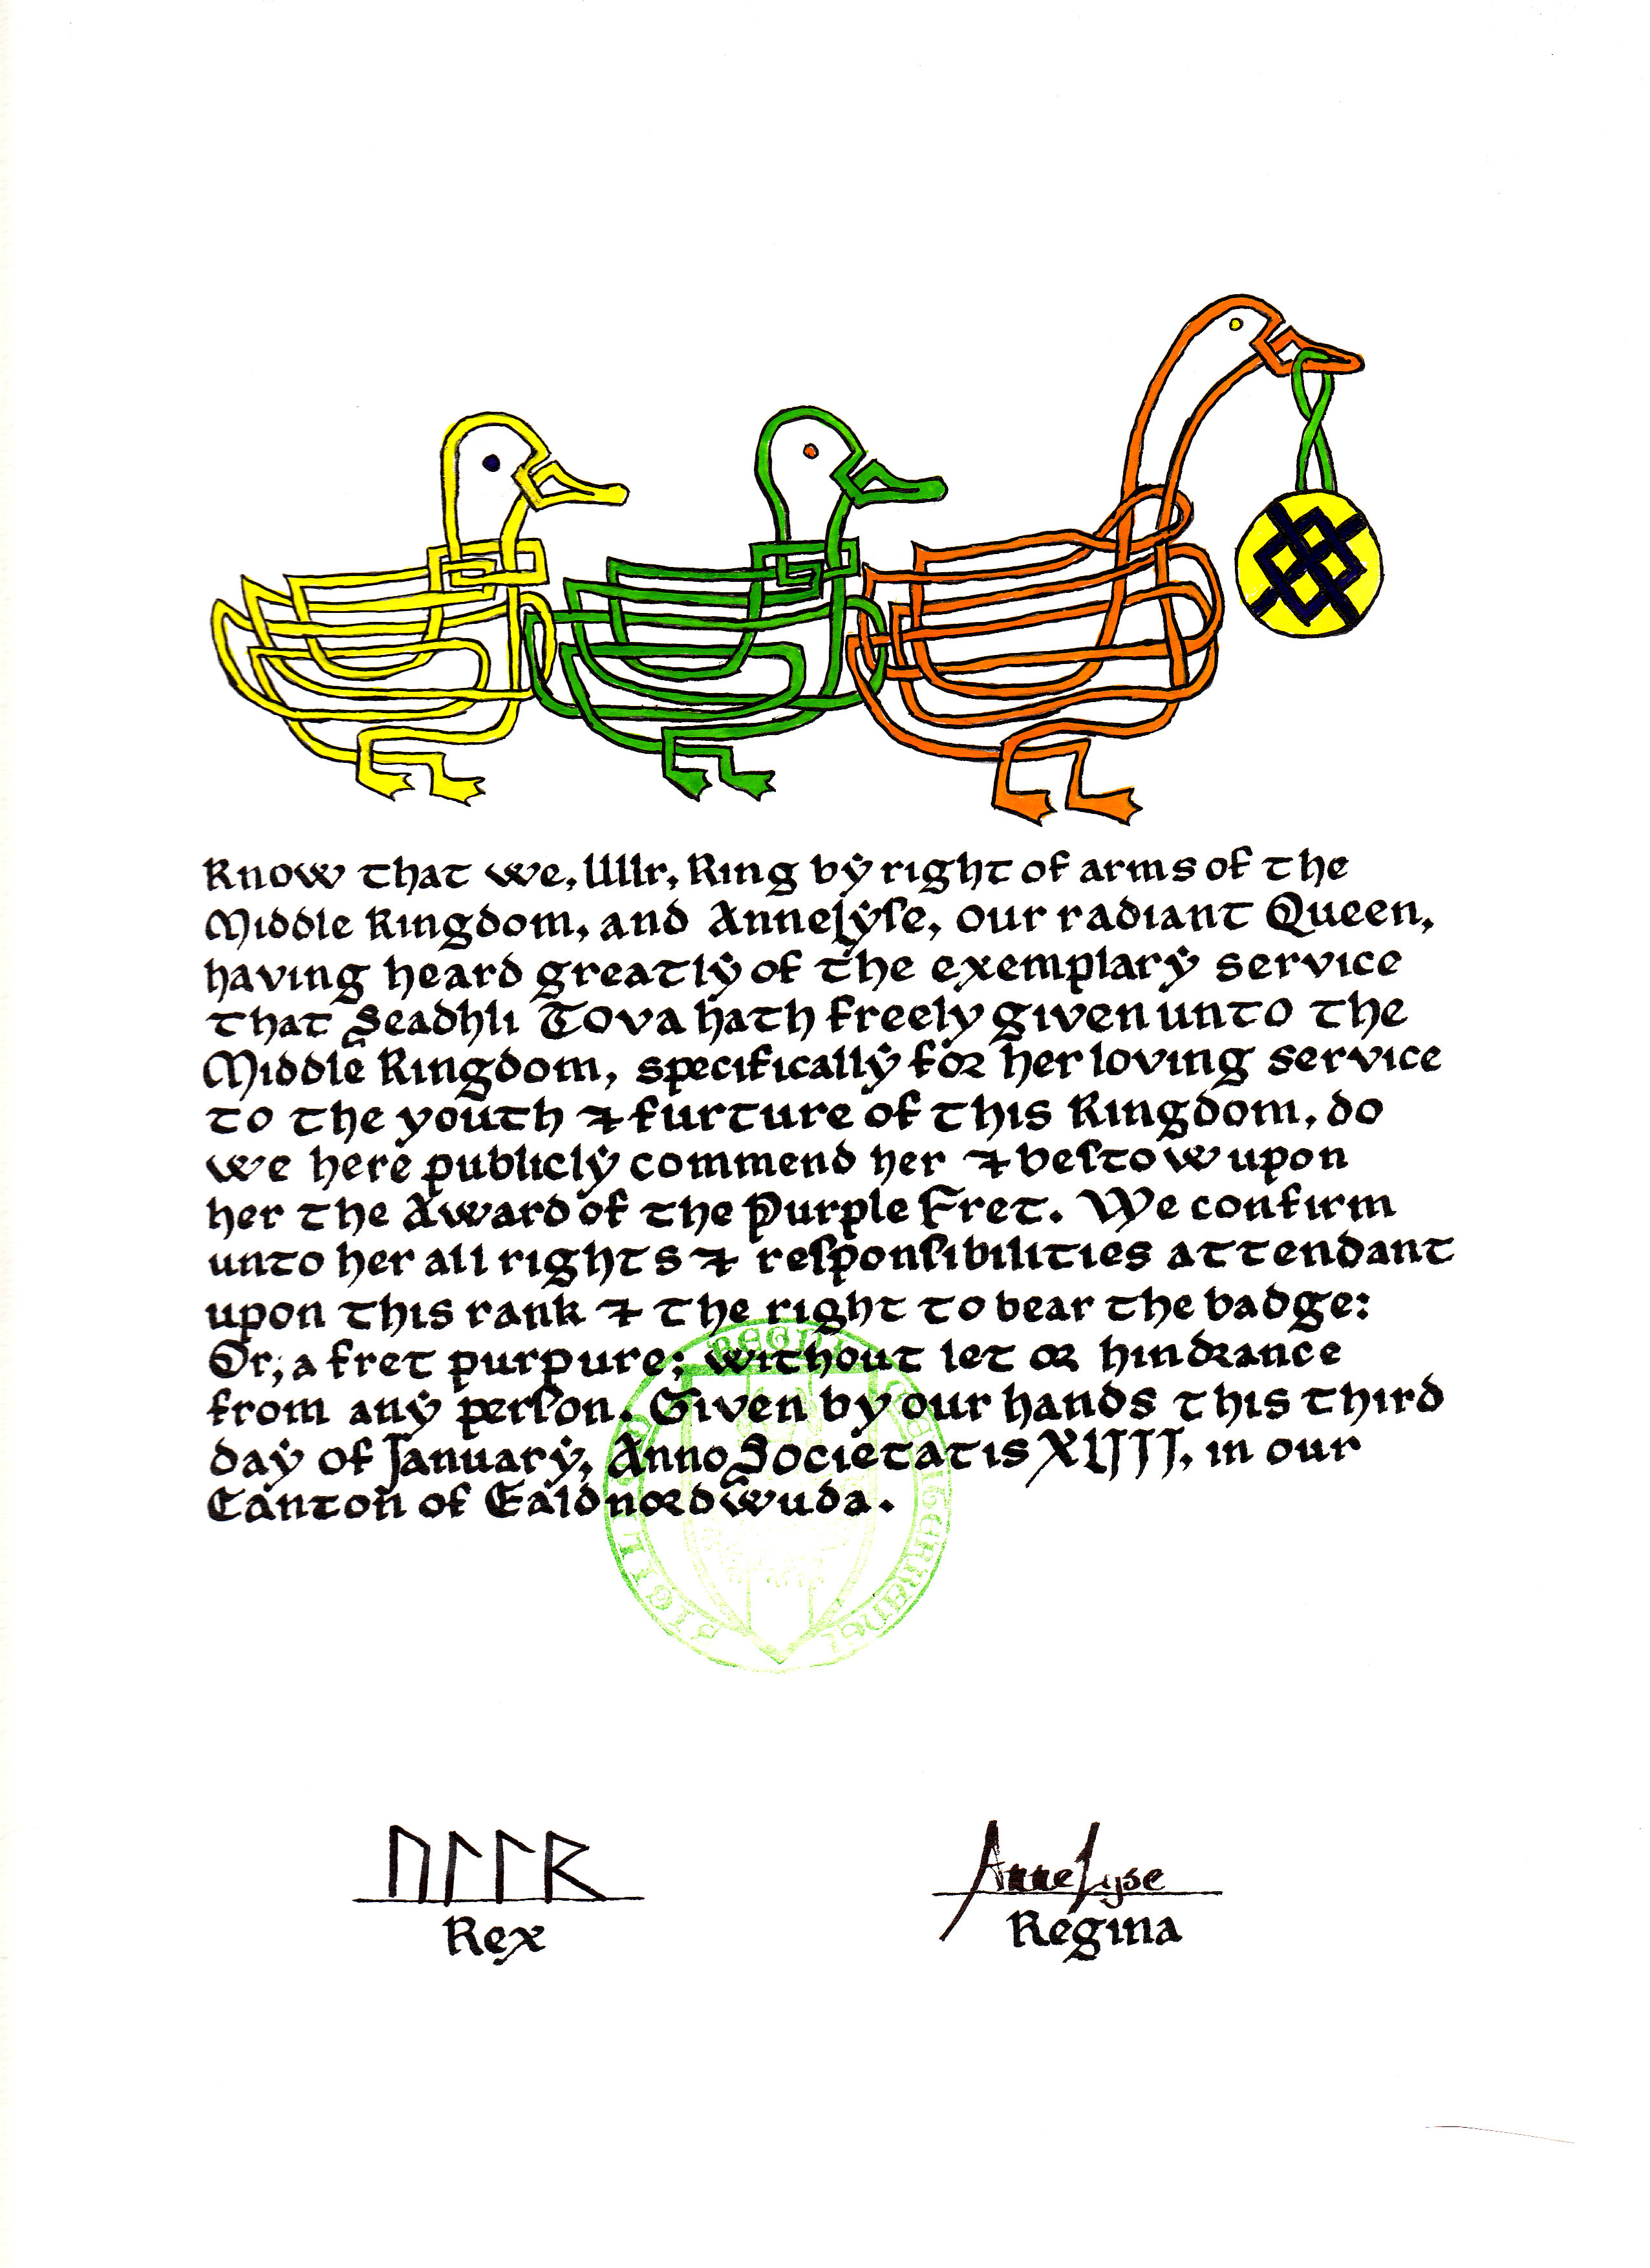 Know that we, Ullr, King by right of arms of the
Middle Kingdom, and AnneLyſe, our radiant Queen,
having heard greatly of the exemplary service
that Seadhli Tova hath freely given unto the
Middle Kingdom, specifically for her loving service
to the youth ⁊ furture of this Kingdom, do
we here publicly commend her ⁊ beſtow upon
her the Award of the Purple Fret. We confirm
unto her all rights ⁊ reſponſibilities attendant
upon this rank ⁊ the right to bear the badge:
Or, a fret purpure; without let or hindrance
from any perſon. Given by our hands this third
day of January, Anno Societatis XLIIII, in our
Canton of Ealdnordwuda.
ᚢᛚᛚᚱ
Rex
AnneLyse
Regina